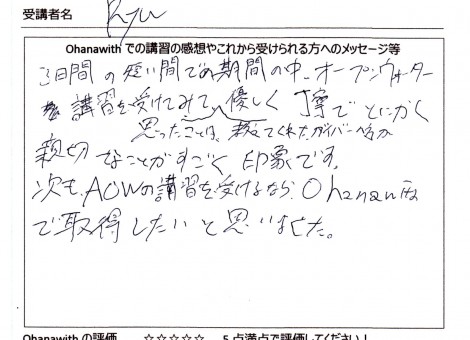 受講者名 Ryu
Ohanawith での講習の感想やこれから受けられる方へのメッセージ等
3日間の短い間での期間の中、オープンウォーター
講習を受けてみて、優しく丁寧でとにかく
思ったことは、教えてくれたダイバーの方が
親切なことがすごく印象です。
次も、AOWの講習を受けるなら、Ohanawith
で取得したいと思いました。
Ohanawith の評価 ☆☆☆☆☆ 5点満点で評価してください！